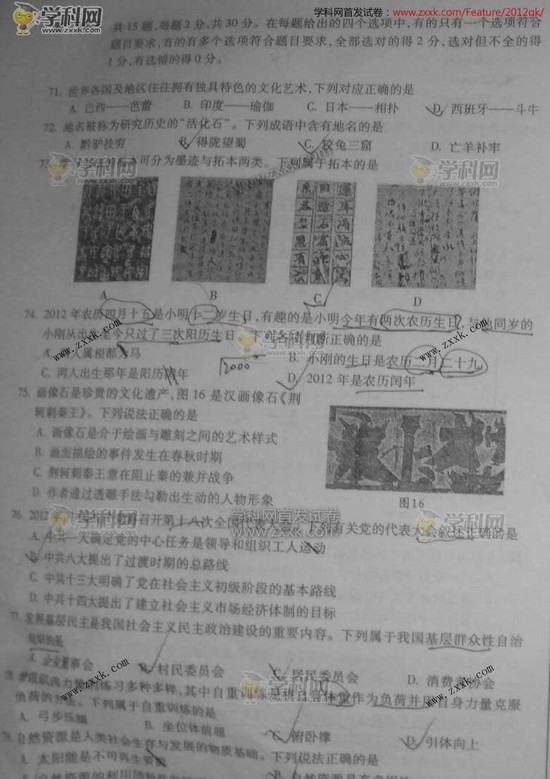 学科网首发试卷：www.zxxk.com/Feature/2012gk/
共15题,每题2分,共30分。在每题给出的四个选项中,有的只有一个选项符合
题目要求,有的有多个选项符合题目要求,全部选对的得2分,选对但不全的得
1分,有选错的得0分。
71. 世界各国及地区往往拥有独具特色的文化艺术,下列对应正确的是
A. 巴西——芭蕾 B. 印度——瑜伽 C. 日本——相扑 D. 西班牙——斗牛
72. 地名被称为研究历史的“活化石”。下列成语中含有地名的是
A. 黔驴技穷 B. 得陇望蜀 C. 狡兔三窟 D. 亡羊补牢
可分为墨迹与拓本两类。下列属于拓本的是
A B C D
74. 2012年农历四月十五是小明十二岁生日,有趣的是小明今年有两次农历生日,与他同岁的
小刚从出生至今只过了三次阳历生日。下列各项判断正确的是
A. 两人属相都为马 B. 小刚的生日是农历二月二十九
C. 两人出生那年是阳历闰年 D. 2012年是农历闰年
2000
75. 画像石是珍贵的文化遗产,图16是汉画像石《荆
轲刺秦王》。下列说法正确的是
A. 画像石是介于绘画与雕刻之间的艺术样式
B. 画面描绘的事件发生在春秋时期
C. 荆轲刺秦王意在阻止秦的兼并战争
D. 作者通过透雕手法勾勒出生动的人物形象
图16
76. 2012 召开第十八次全国代表大会。下列有关党的代表大会叙述正确的是
A. 中共一大确定党的中心任务是领导和组织工人运动
B. 中共八大提出了过渡时期的总路线
C. 中共十三大明确了党在社会主义初级阶段的基本路线
D. 中共十四大提出了建立社会主义市场经济体制的目标
77. 发展基层民主是我国社会主义民主政治建设的重要内容。下列属于我国基层群众性自治
组织的是
A. 企业董事会 B. 村民委员会 C. 居民委员会 D. 消费者协会
力量的练习多种多样,其中自重训练是指以自身体重作为负荷并凭自身力量克服
负荷的方法。下列属于自重训练的是
A. 弓步压腿 B. 坐位体前屈 C. 俯卧撑 D. 引体向上
自然资源是人类社会生存与发展的物质基础。下列说法正确的是
A. 太阳能是不可再生资源
学科网
www.zxxk.com
学科网首发试卷
www.zxxk.com